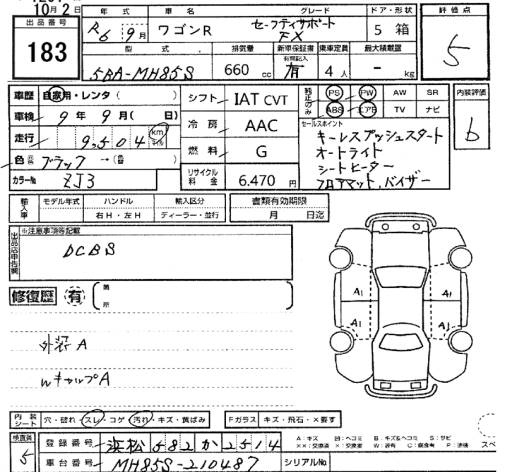 10月2日
出品番号
183
年式 車名 グレード ドア・形状 評価点
R6 9月 ワゴンR セーフティサポート FX 5 箱 5
型式 排気量 新車保証書 有無記入 乗車定員 最大積載量
5BA-MH85S 660 cc 有 4人 - kg
車歴 自家用・レンタ( )
車検 9年9月( 日)
走行 9,504 km
色 ブラック →(色 )
カラーNo ZJ3
シフト IAT CVT
冷房 AAC
燃料 G
リサイクル料金 6.470円
純正のみ PS PW AW SR
ABS エアB TV ナビ
内装評価 b
セールスポイント
キーレスプッシュスタート
オートライト
シートヒーター
フロアマット、バイザー
輸入車 モデル年式 ハンドル 輸入区分 書類有効期限
右H・左H ディーラー・並行 月 日迄
出品店申告欄 ※注意事項等記載
DCBS
修復歴 有 ( 箇所
A1 A1
A1 A1
外装A
WキャップA
内装シート 穴・破れ・スレ・コゲ・汚れ・キズ・黄ばみ Fガラス キズ・飛石・X要す
検査員 5
登録番号 浜松582か2514
車台番号 MH85S-210487 シリアルNo